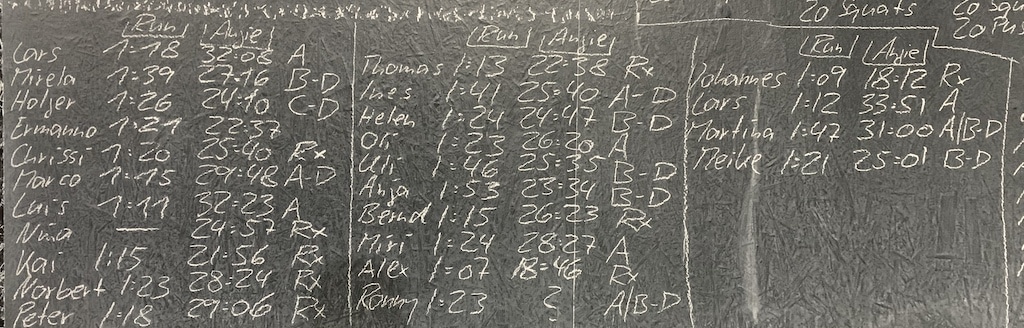 20 Squats
20 Squ
20 Pus
Run Angie
Lars 1:18 32:08 A
Mirela 1:39 27:16 B-D
Holger 1:26 24:10 C-D
Ermanno 1:21 22:37
Chrissi 1:20 25:40 Rx
Marco 1:15 29:48 A-D
Luis 1:11 32:23 A
Nina — 24:57 Rx
Kai 1:15 21:56 Rx
Norbert 1:23 28:24 Rx
Peter 1:18 29:06 Rx
Run Angie
Thomas 1:13 22:38 Rx
Ines 1:41 25:40 A-D
Helen 1:24 24:47 B-D
Oli 1:23 26:20 A
Uli 1:46 25:35 B-D
Anja 1:53 23:34 B-D
Bernd 1:15 26:23 Rx
Miri 1:24 28:27 A
Alex 1:07 18:46 Rx
Ronny 1:23 ? A/B-D
Run Angie
Johannes 1:09 18:12 Rx
Lars 1:12 33:51 A
Martina 1:47 31:00 A/B-D
Meike 1:21 25:01 B-D